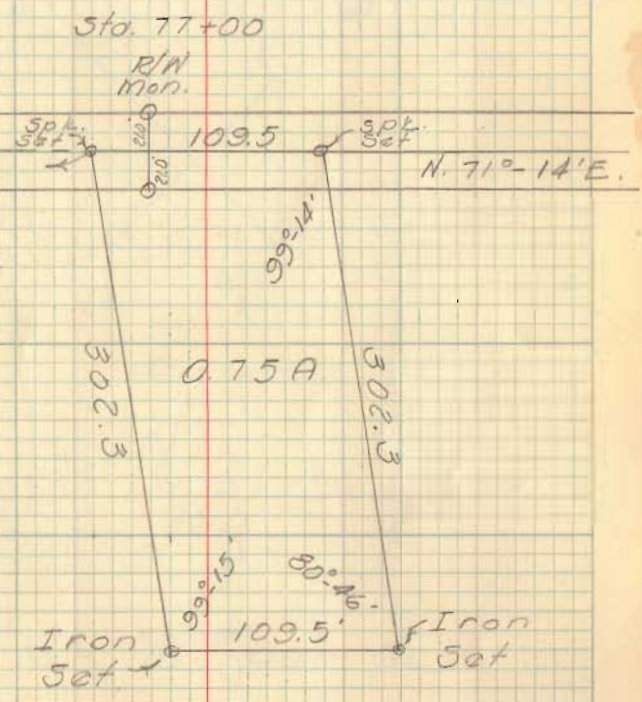 Sta. 77+00
R/W
Mon.
Spk.
Set
21.0'
109.5
Spk.
Set
21.0'
N. 71°-14'E.
99°-14'
302.3
0.75 A
302.3
99°-15'
80°-46'
Iron
Set
109.5'
Iron
Set